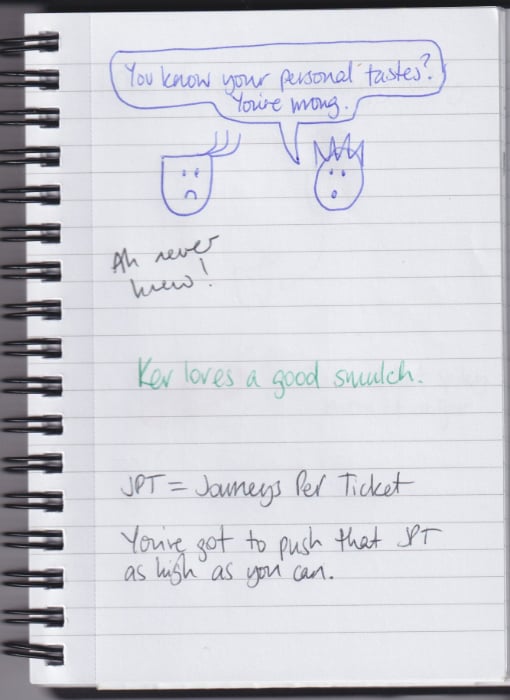 You know your personal tastes?
You're wrong.
Ah never
knew!
Kev loves a good smulch.
JPT = Journeys Per Ticket
You've got to push that JPT
as high as you can.